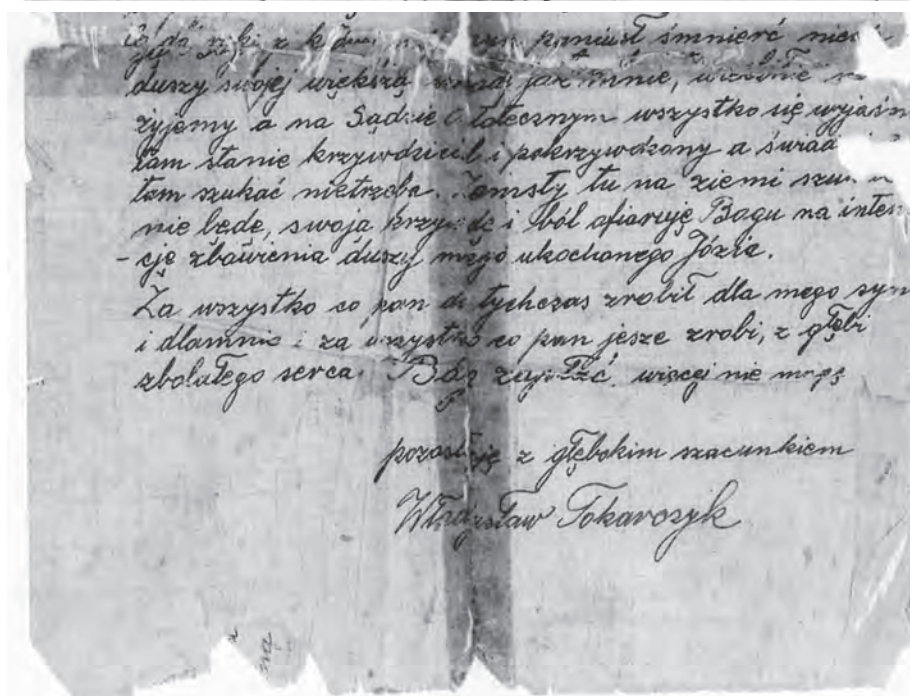 z poniósł śmnierć
duszy swojej większą jak mnie,
żyjemy a na Sądzie totecznym wszystko się wyjaśn
tam stanie krzywdziciel i pokrzywdzony a świad
tam szukać nietrzeba. Zemsty tu na ziemi szu
nie będe, swoja krzywde i ból ofiaruję Bogu na inten
-cję zbawienia duszy mego ukochanego Józia.
Za wszystko co pan do tychczas zrobił dla mego syn
i dlamnie i za wszystko co pan jesze zrobi, z głębi
zbolałego serca. Bóg zapłać, więcej nie mogę
pozostaję z głębokim szacunkiem
Władysław Tokarczyk